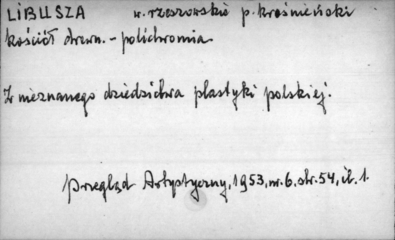 LIBUSZA w. rzeszowskie p. krośnieński
kościół drewn. - polichromia
Z nieznanego dziedzictwa plastyki polskiej.
Przegląd Artystyczny, 1953, nr. 6, str. 54, il. 1.